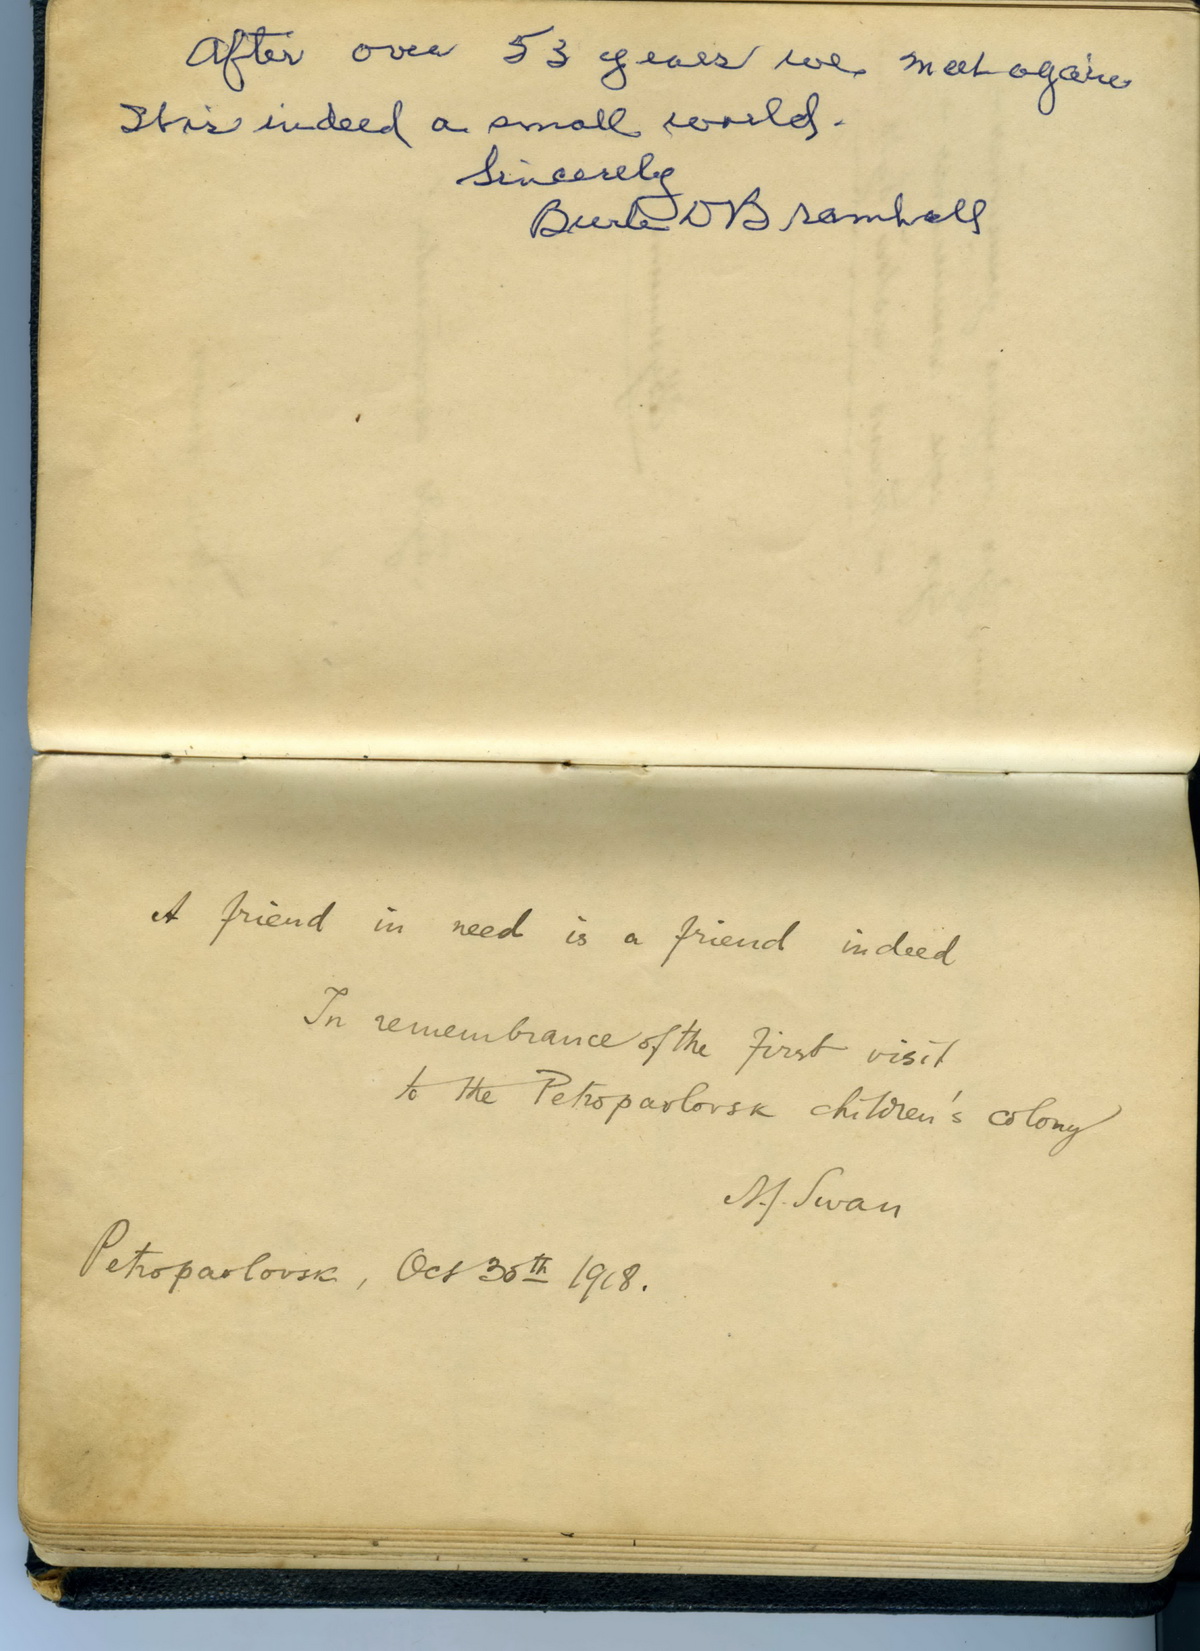 After over 53 years we meet again
It is indeed a small world.
Sincerely
Burle D Bramhall
A friend in need is a friend indeed
In remembrance of the first visit
to the Petropavlovsk children's colony
A.J. Swan
Petropavlovsk, Oct 30th 1918.